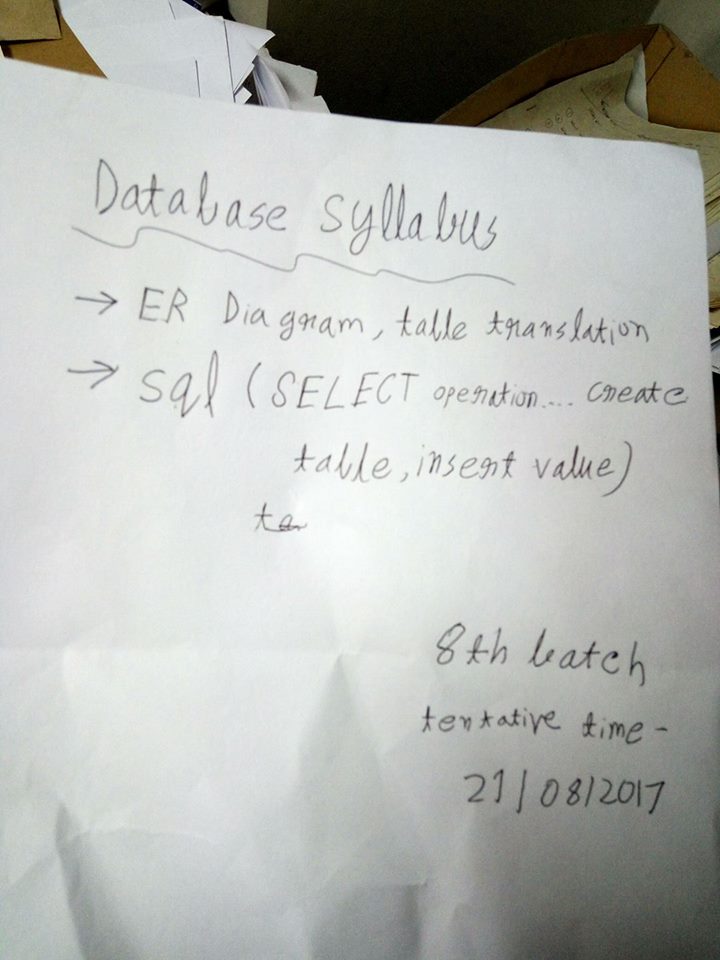 Database Syllabus
→ ER Diagram, table translation
→ sql (SELECT operation.... create
table, insert value)
8th batch
tentative time -
21/08/2017